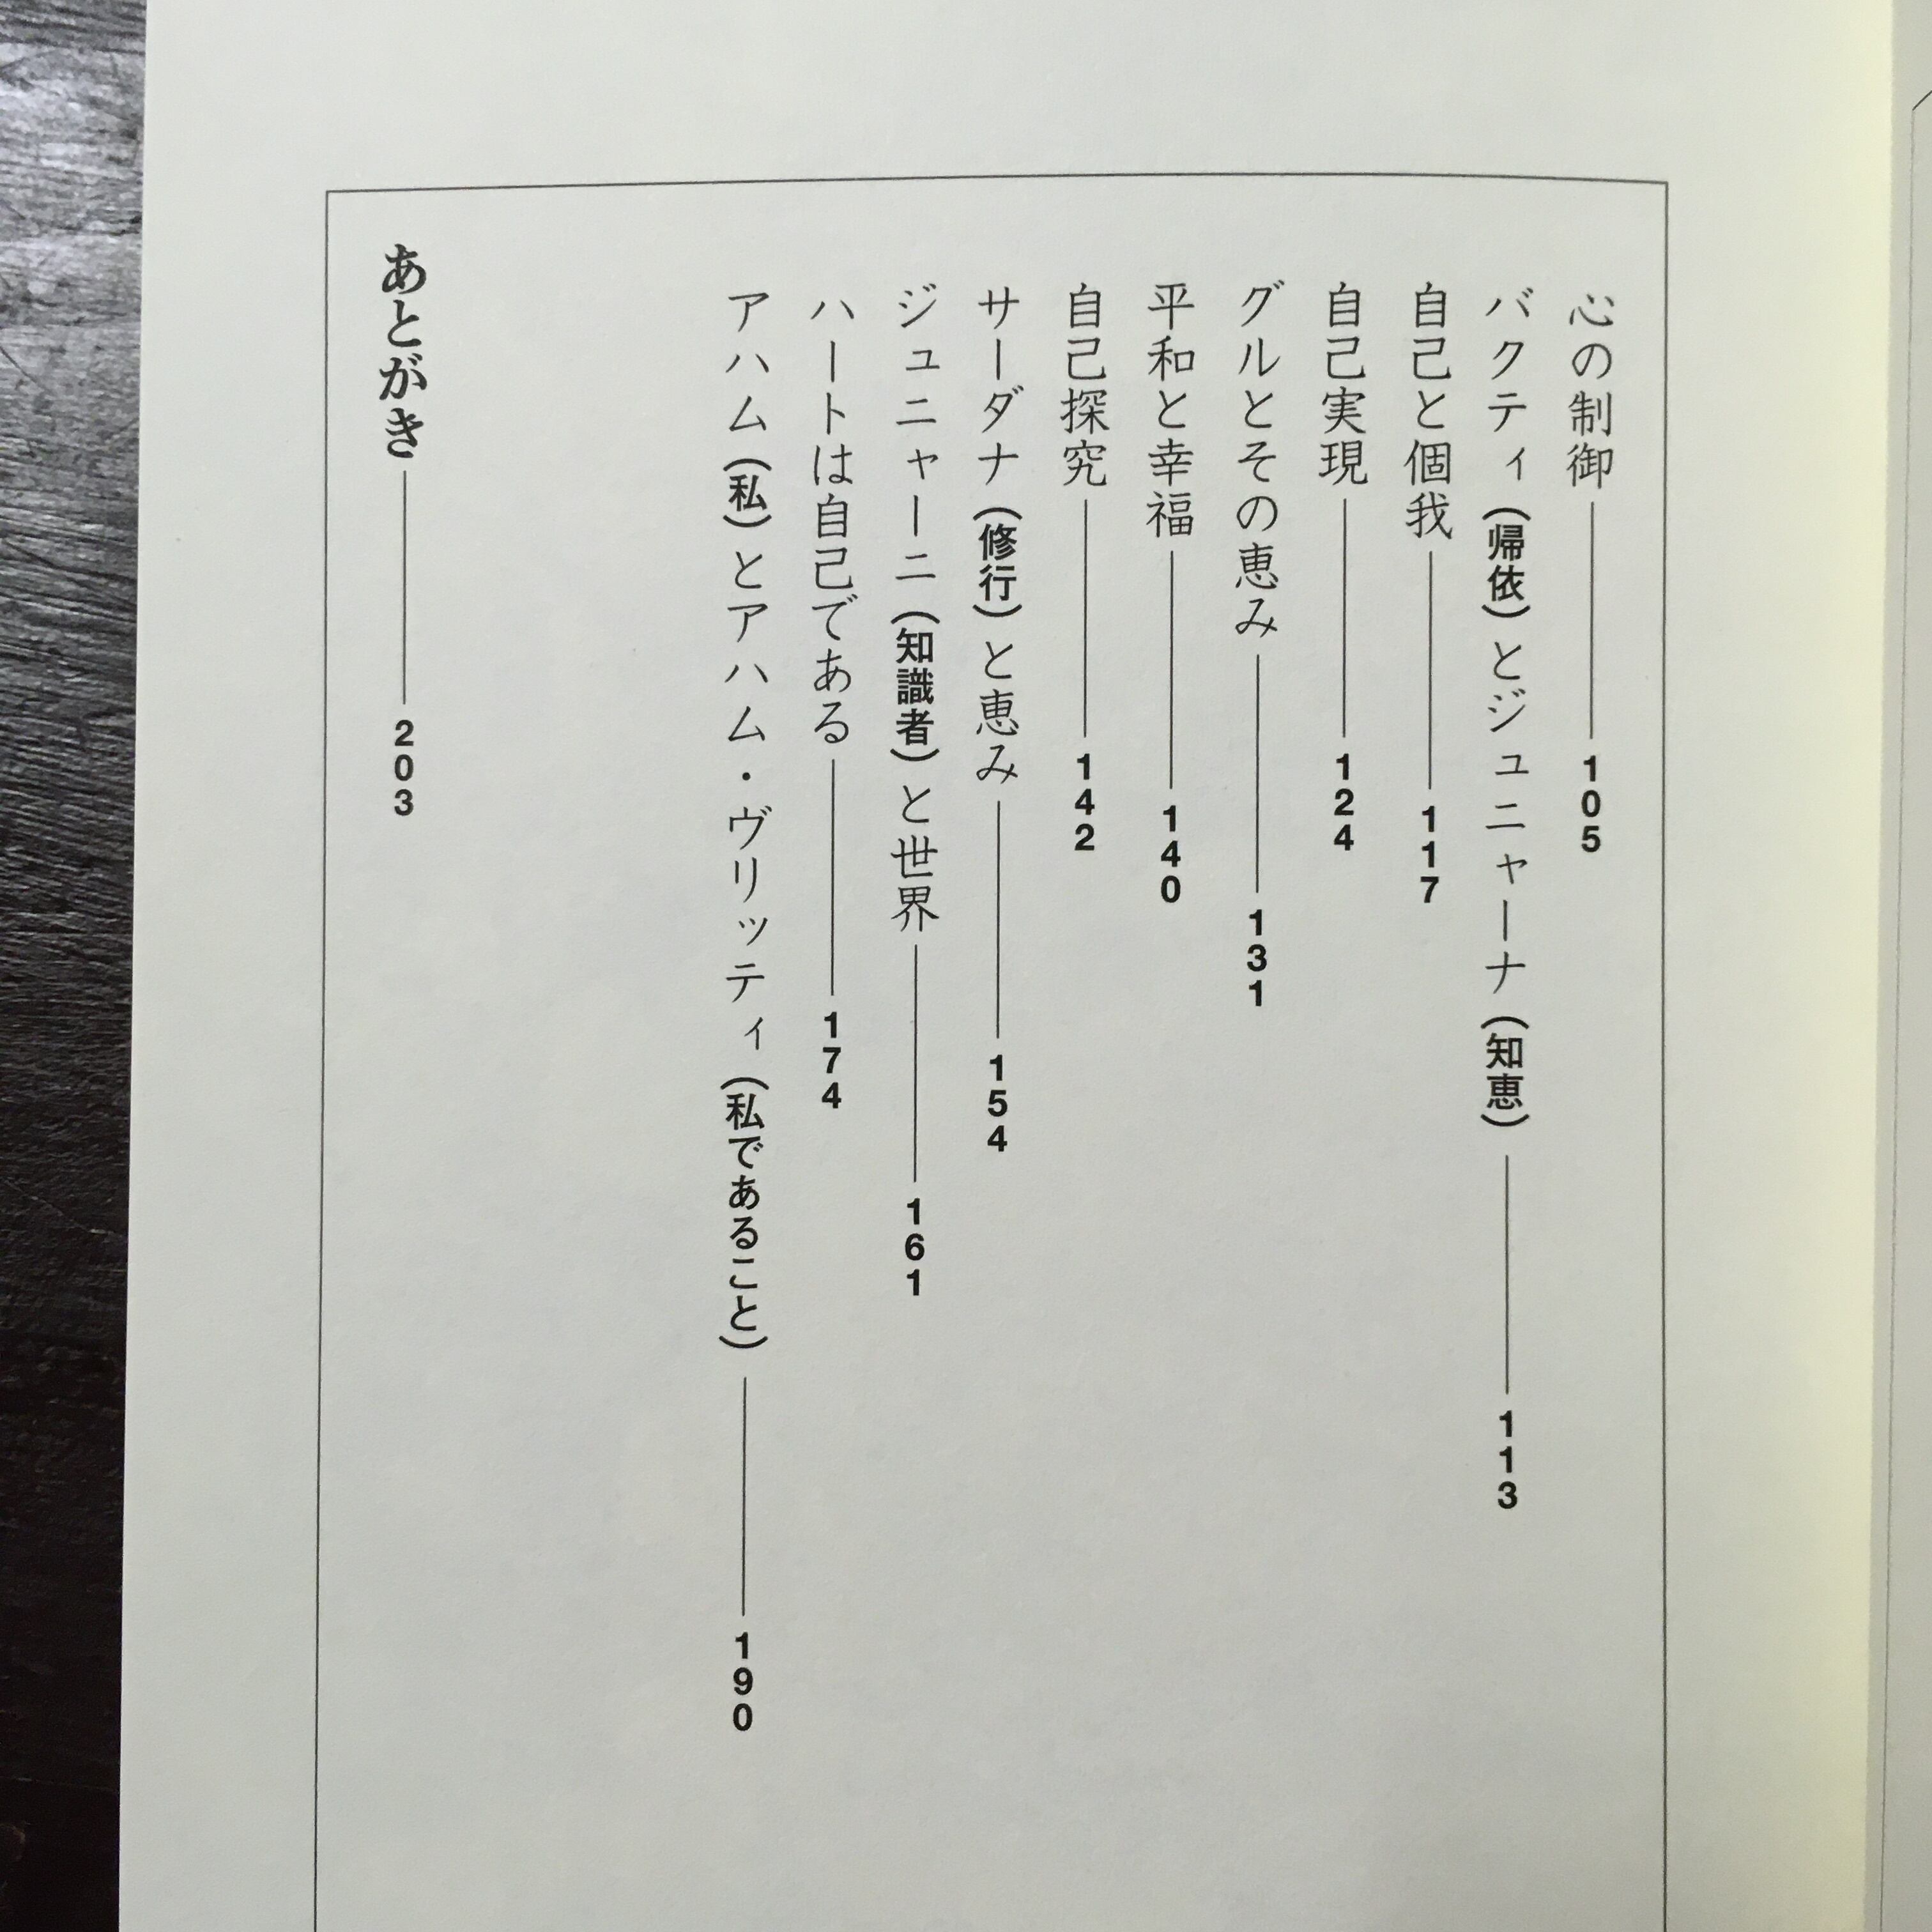 心の制御 105
バクティ(帰依)とジュニャーナ(知恵) 113
自己と個我 117
自己実現 124
グルとその恵み 131
平和と幸福 140
自己探究 142
サーダナ(修行)と恵み 154
ジュニャーニ(知識者)と世界 161
ハートは自己である 174
アハム(私)とアハム・ヴリッティ(私であること) 190
あとがき 203